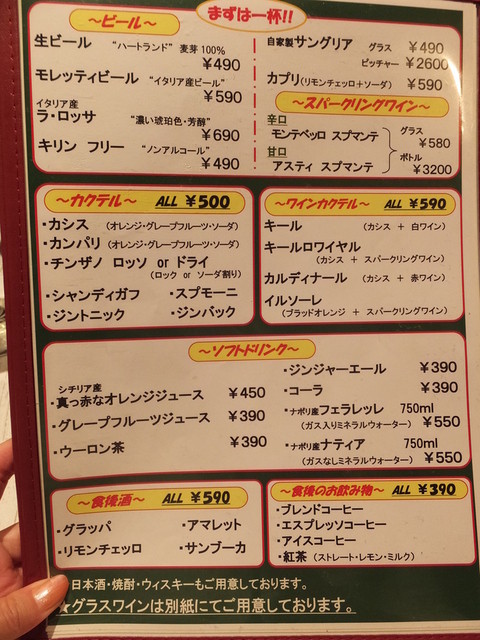 まずは一杯!!
～ビール～
生ビール “ハートランド”麦芽100%
￥490
モレッティビール “イタリア産ビール”
￥590
イタリア産
ラ・ロッサ “濃い琥珀色・芳醇”
￥690
キリン フリー “ノンアルコール”
￥490
自家製サングリア グラス ￥490
ピッチャー ￥2600
カプリ(リモンチェッロ+ソーダ) ￥590
～スパークリングワイン～
辛口
モンテベッロ スプマンテ
甘口
アスティ スプマンテ
グラス
￥580
ボトル
￥3200
～カクテル～ ALL ￥500
・カシス (オレンジ・グレープフルーツ・ソーダ)
・カンパリ (オレンジ・グレープフルーツ・ソーダ)
・チンザノ ロッソ or ドライ
(ロック or ソーダ割り)
・シャンディガフ ・スプモーニ
・ジントニック ・ジンバック
～ワインカクテル～ ALL ￥590
キール (カシス + 白ワイン)
キールロワイヤル
(カシス + スパークリングワイン)
カルディナール (カシス + 赤ワイン)
イルソーレ
(ブラッドオレンジ + スパークリングワイン)
～ソフトドリンク～
シチリア産
・真っ赤なオレンジジュース ￥450
・グレープフルーツジュース ￥390
・ウーロン茶 ￥390
・ジンジャーエール ￥390
・コーラ ￥390
・ナポリ産フェラレッレ 750ml
(ガス入りミネラルウォーター) ￥550
・ナポリ産ナティア 750ml
(ガスなしミネラルウォーター) ￥550
～食後酒～ ALL ￥590
・グラッパ ・アマレット
・リモンチェッロ ・サンブーカ
～食後のお飲み物～ ALL ￥390
・ブレンドコーヒー
・エスプレッソコーヒー
・アイスコーヒー
・紅茶 (ストレート・レモン・ミルク)
日本酒・焼酎・ウィスキーもご用意しております。
★グラスワインは別紙にてご用意しております。